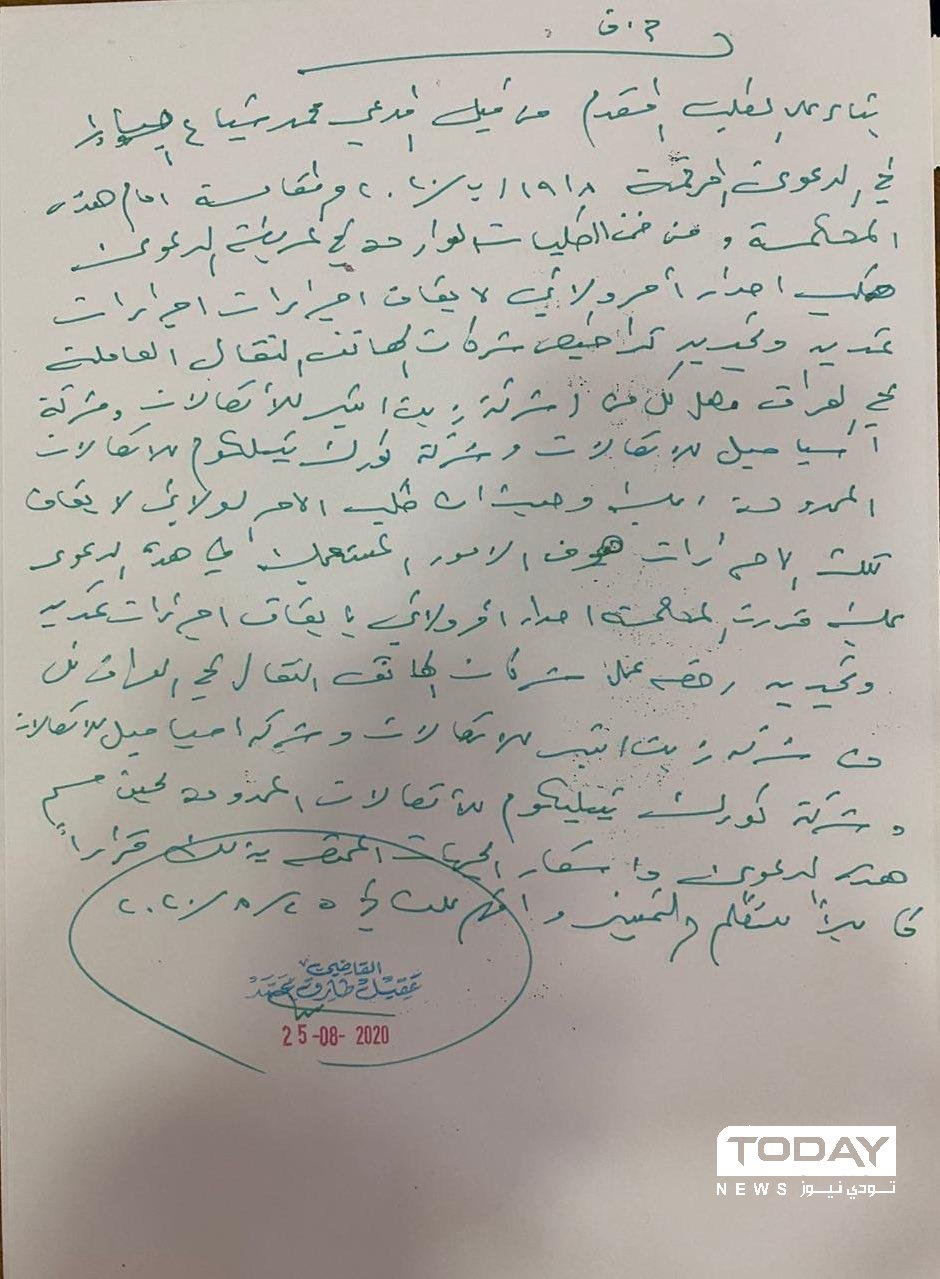 ق . م
بناء على الطلب المقدم من قبل المدعي محمد شياع
في الدعوى المرقمة ١٩١٨/ب/٢٠٢٠ والمقامة امام هذه
المحكمة ومن ضمن الطلبات الواردة في عريضة الدعوى
طلب اصدار أمر ولائي لايقاف اجراءات اجراءات
تمديد وتجديد تراخيص شركات الهاتف النقال العاملة
في العراق وهي كل من (شركة زين اثير للأتصالات وشركة
اسياسيل للاتصالات وشركة كورك تيلكوم للاتصالات
المحدودة وحيث ان طلب الامر الولائي لايقاف
تلك الاجراءات هو من الامور المستعجلة في هذه الدعوى
عليه قررت المحكمة اصدار أمر ولائي بايقاف اجراءات تمديد
وتجديد رخصة عمل شركات الهاتف النقال في العراق كل
من شركة زين اثير للاتصالات وشركة اسياسيل للاتصالات
وشركة كورك تيليكوم للأتصالات المحدودة لحين حسم
هذه الدعوى واشعار الجهات المختصة بذلك قراراً
قابلاً للتظلم والتمييز وافهم علناً في ٢٥/٨/٢٠٢٠
القاضي
عقيل طارق محمد
25-08-2020
TODAY
NEWS تودي نيوز